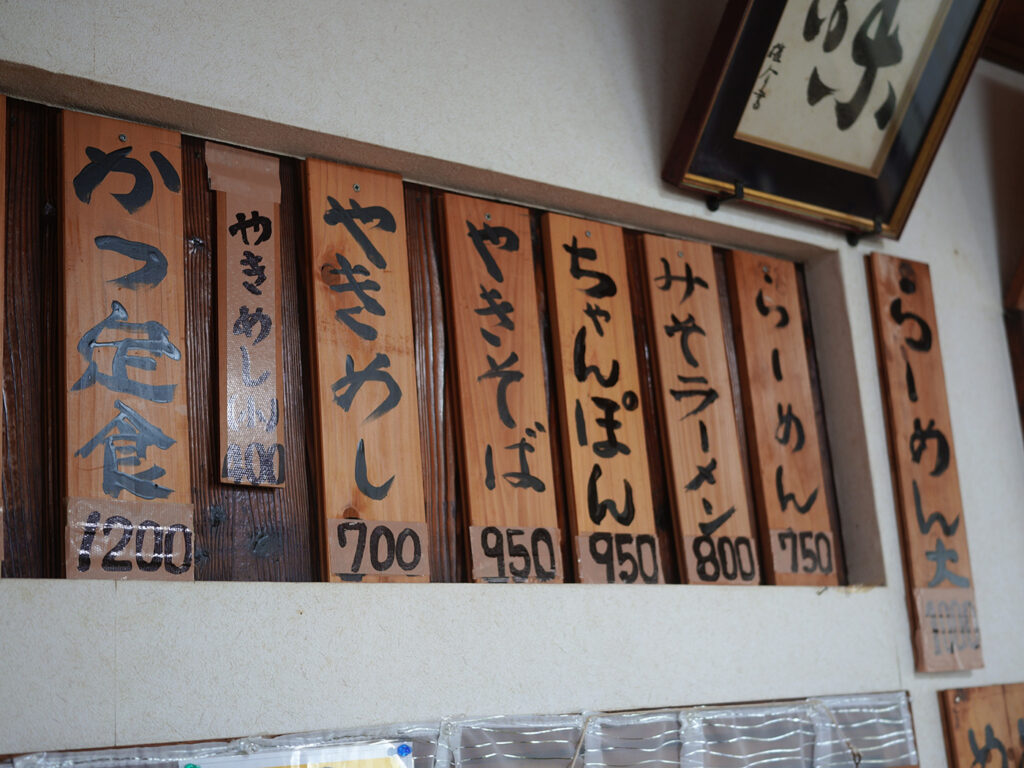 らーめん大
らーめん
750
みそラーメン
800
ちゃんぽん
950
やきそば
950
やきめし
700
やきめし
かつ定食
1200
味
め